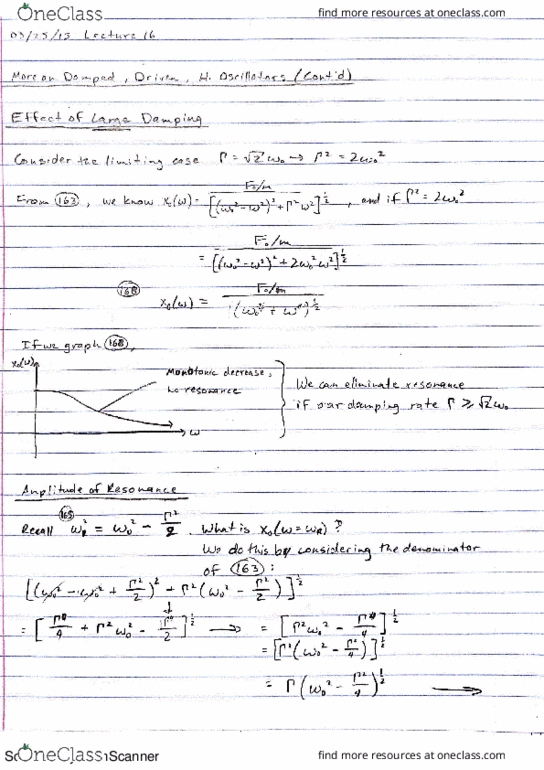 OneClass
find more resources at oneclass.com
03/25/15 Lecture 16
More on Damped, Driven, H. Oscillators (Cont'd)
Effect of Large Damping
Consider the limiting case Γ = √2 ω₀ → Γ² = 2ω₀²
From (163), we know x₀(ω) = F₀/m / [(ω₀² - ω²)² + Γ²ω²]^½, and if Γ² = 2ω₀²
= F₀/m / [(ω₀² - ω²)² + 2ω₀²ω²]^½
(168) x₀(ω) = F₀/m / (ω₀⁴ + ω⁴)^½
If we graph (168),
x₀(ω)
Monotonic decrease,
no resonance
ω
We can eliminate resonance
if our damping rate Γ ≥ √2 ω₀
Amplitude of Resonance
Recall (165) ω_R² = ω₀² - Γ²/2. What is x₀(ω = ω_R)?
We do this by considering the denominator
of (163):
[(ω₀² - ω₀² + Γ²/2)² + Γ²(ω₀² - Γ²/2)]^½
= [Γ⁴/4 + Γ²ω₀² - Γ⁴/2]^½ → = [Γ²ω₀² - Γ⁴/4]^½
= [Γ²(ω₀² - Γ²/4)]^½
= Γ(ω₀² - Γ²/4)^½ →
OneClass
Scanner
find more resources at oneclass.com